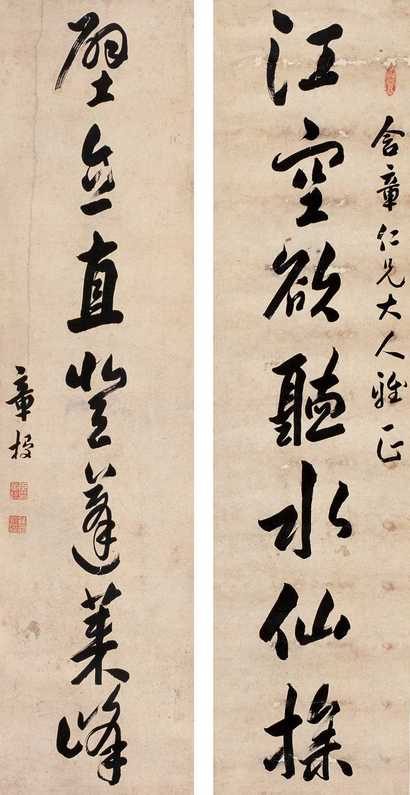 含章仁兄大人雅正
江空欲聽水仙操
壁立直登蓬莱峰
章梫